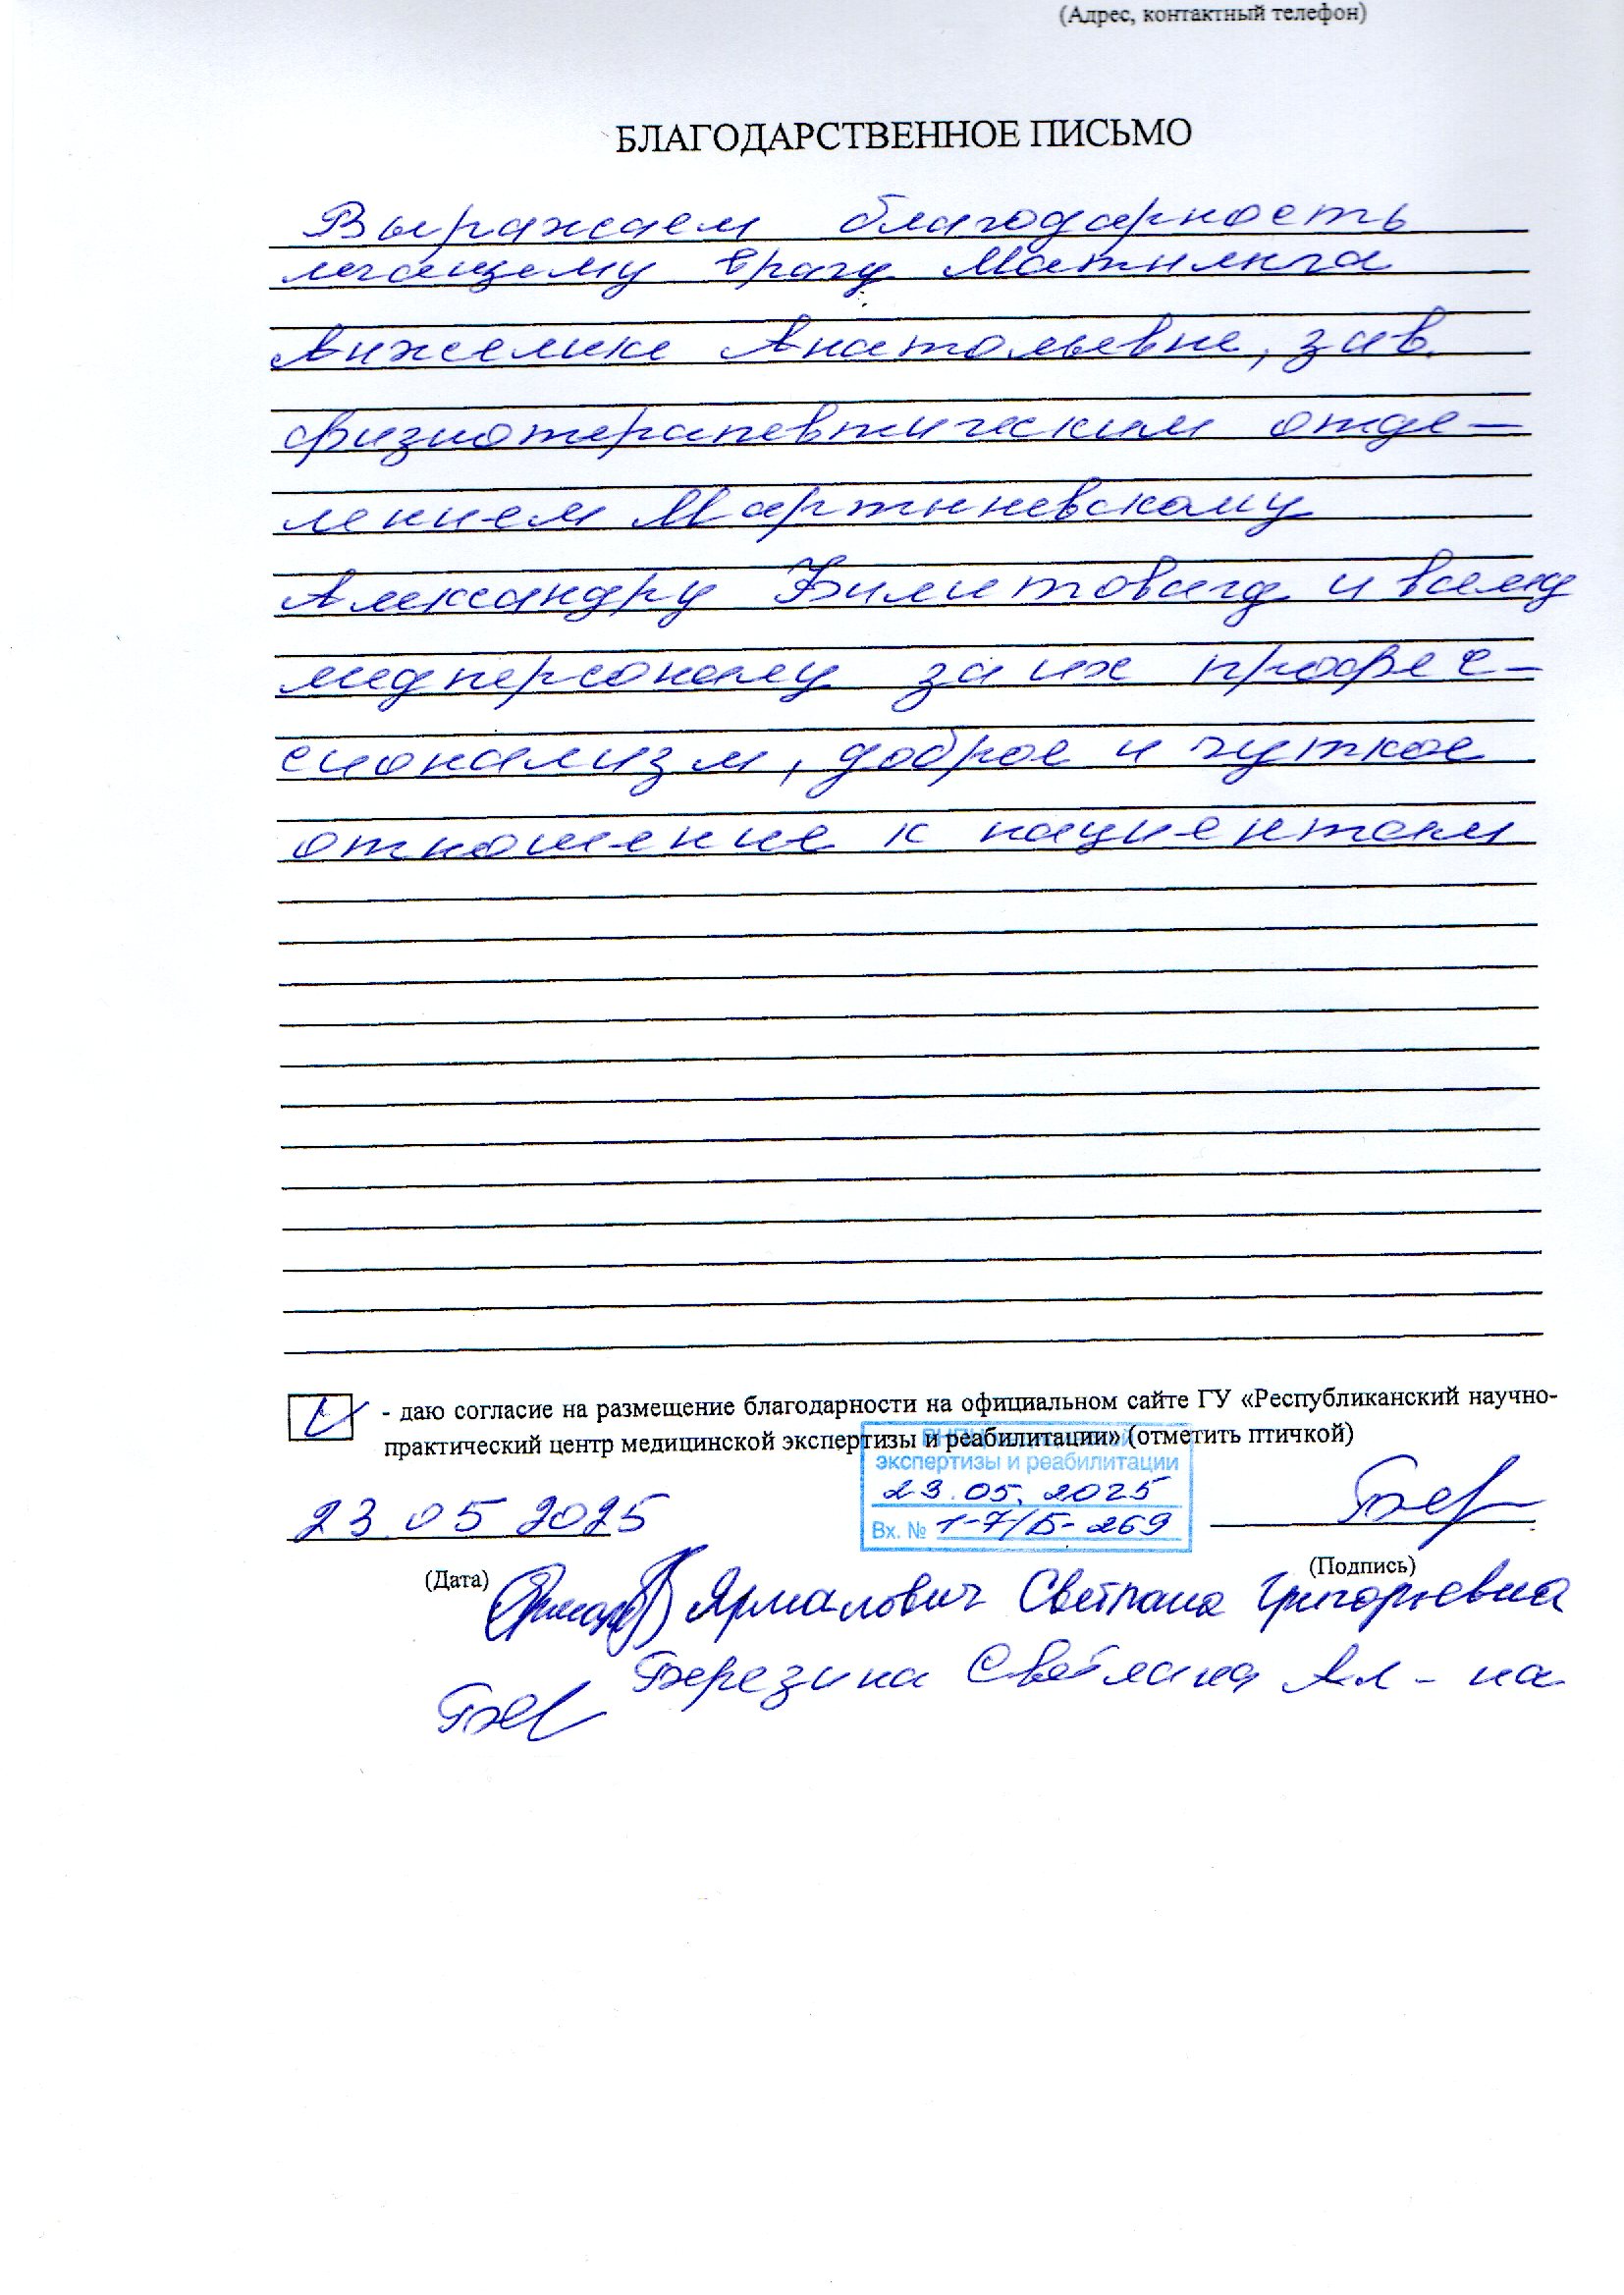 (Адрес, контактный телефон)
БЛАГОДАРСТВЕННОЕ ПИСЬМО
Выражаем благодарность
лечащему врачу
Анжелике Анатольевне, зав.
физиотерапевтическим отде-
лением Мартыневскому
Александру и всему
медперсоналу за их профес-
сионализм, доброе и чуткое
отношение к пациентам
- даю согласие на размещение благодарности на официальном сайте ГУ «Республиканский научно-
практический центр медицинской экспертизы и реабилитации» (отметить птичкой)
экспертизы и реабилитации
23.05.2025
Вх. № 1-7/Б-269
23.05 2025
(Дата)
(Подпись)
Ярмалович Светлана Григорьевна
Березина Светлана Ал-на